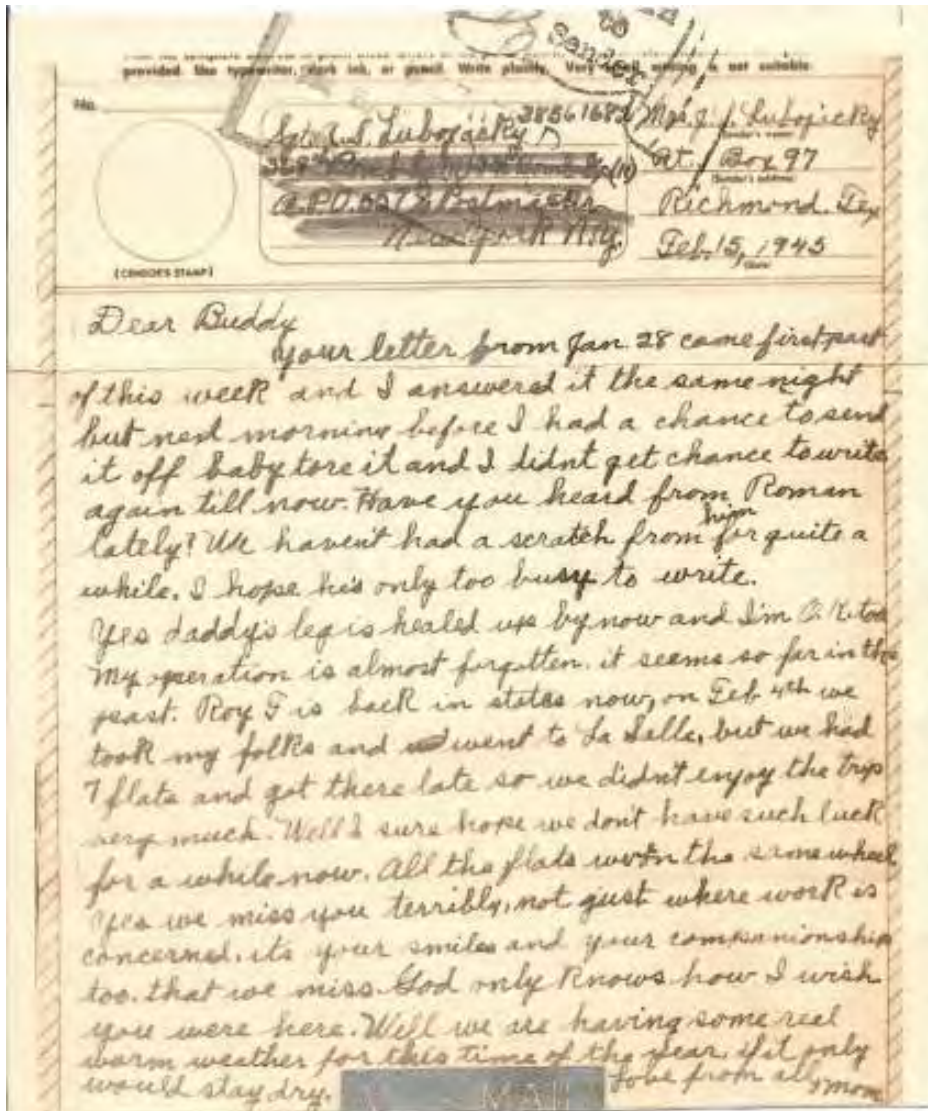 to
Sender
provided. Use typewriter, dark ink, or pencil. Write plainly. Very small writing is not suitable.
No.
38561682
Sgt. A. S. Lubojacky
A.P.O. 557 % Postmaster
New York N.Y.
(CENSOR'S STAMP)
Mrs. J. J. Lubojacky
(Sender's name)
Rt. Box 97
(Sender's address)
Richmond. Tex
Feb. 15, 1945
(Date)
Dear Buddy
Your letter from Jan 28 came first part
of this week and I answered it the same night
but next morning before I had a chance to send
it off baby tore it and I didnt get chance to write
again till now. Have you heard from Roman
lately? We havent had a scratch from him for quite a
while. I hope he's only too busy to write.
Yes daddy's leg is healed up by now and I'm O.K. too
My operation is almost forgotten. it seems so far in the
past. Roy F is back in states now, on Feb 4th we
took my folks and went to La Salle, but we had
7 flats and got there late so we didn't enjoy the trip
very much. Well I sure hope we don't have such luck
for a while now. All the flats were on the same wheel
Yes we miss you terribly, not just where work is
concerned, its your smiles and your companionship
too. that we miss. God only knows how I wish
you were here. Well we are having some real
warm weather for this time of the year, if it only
would stay dry.
Love from all
Mom
MAIL